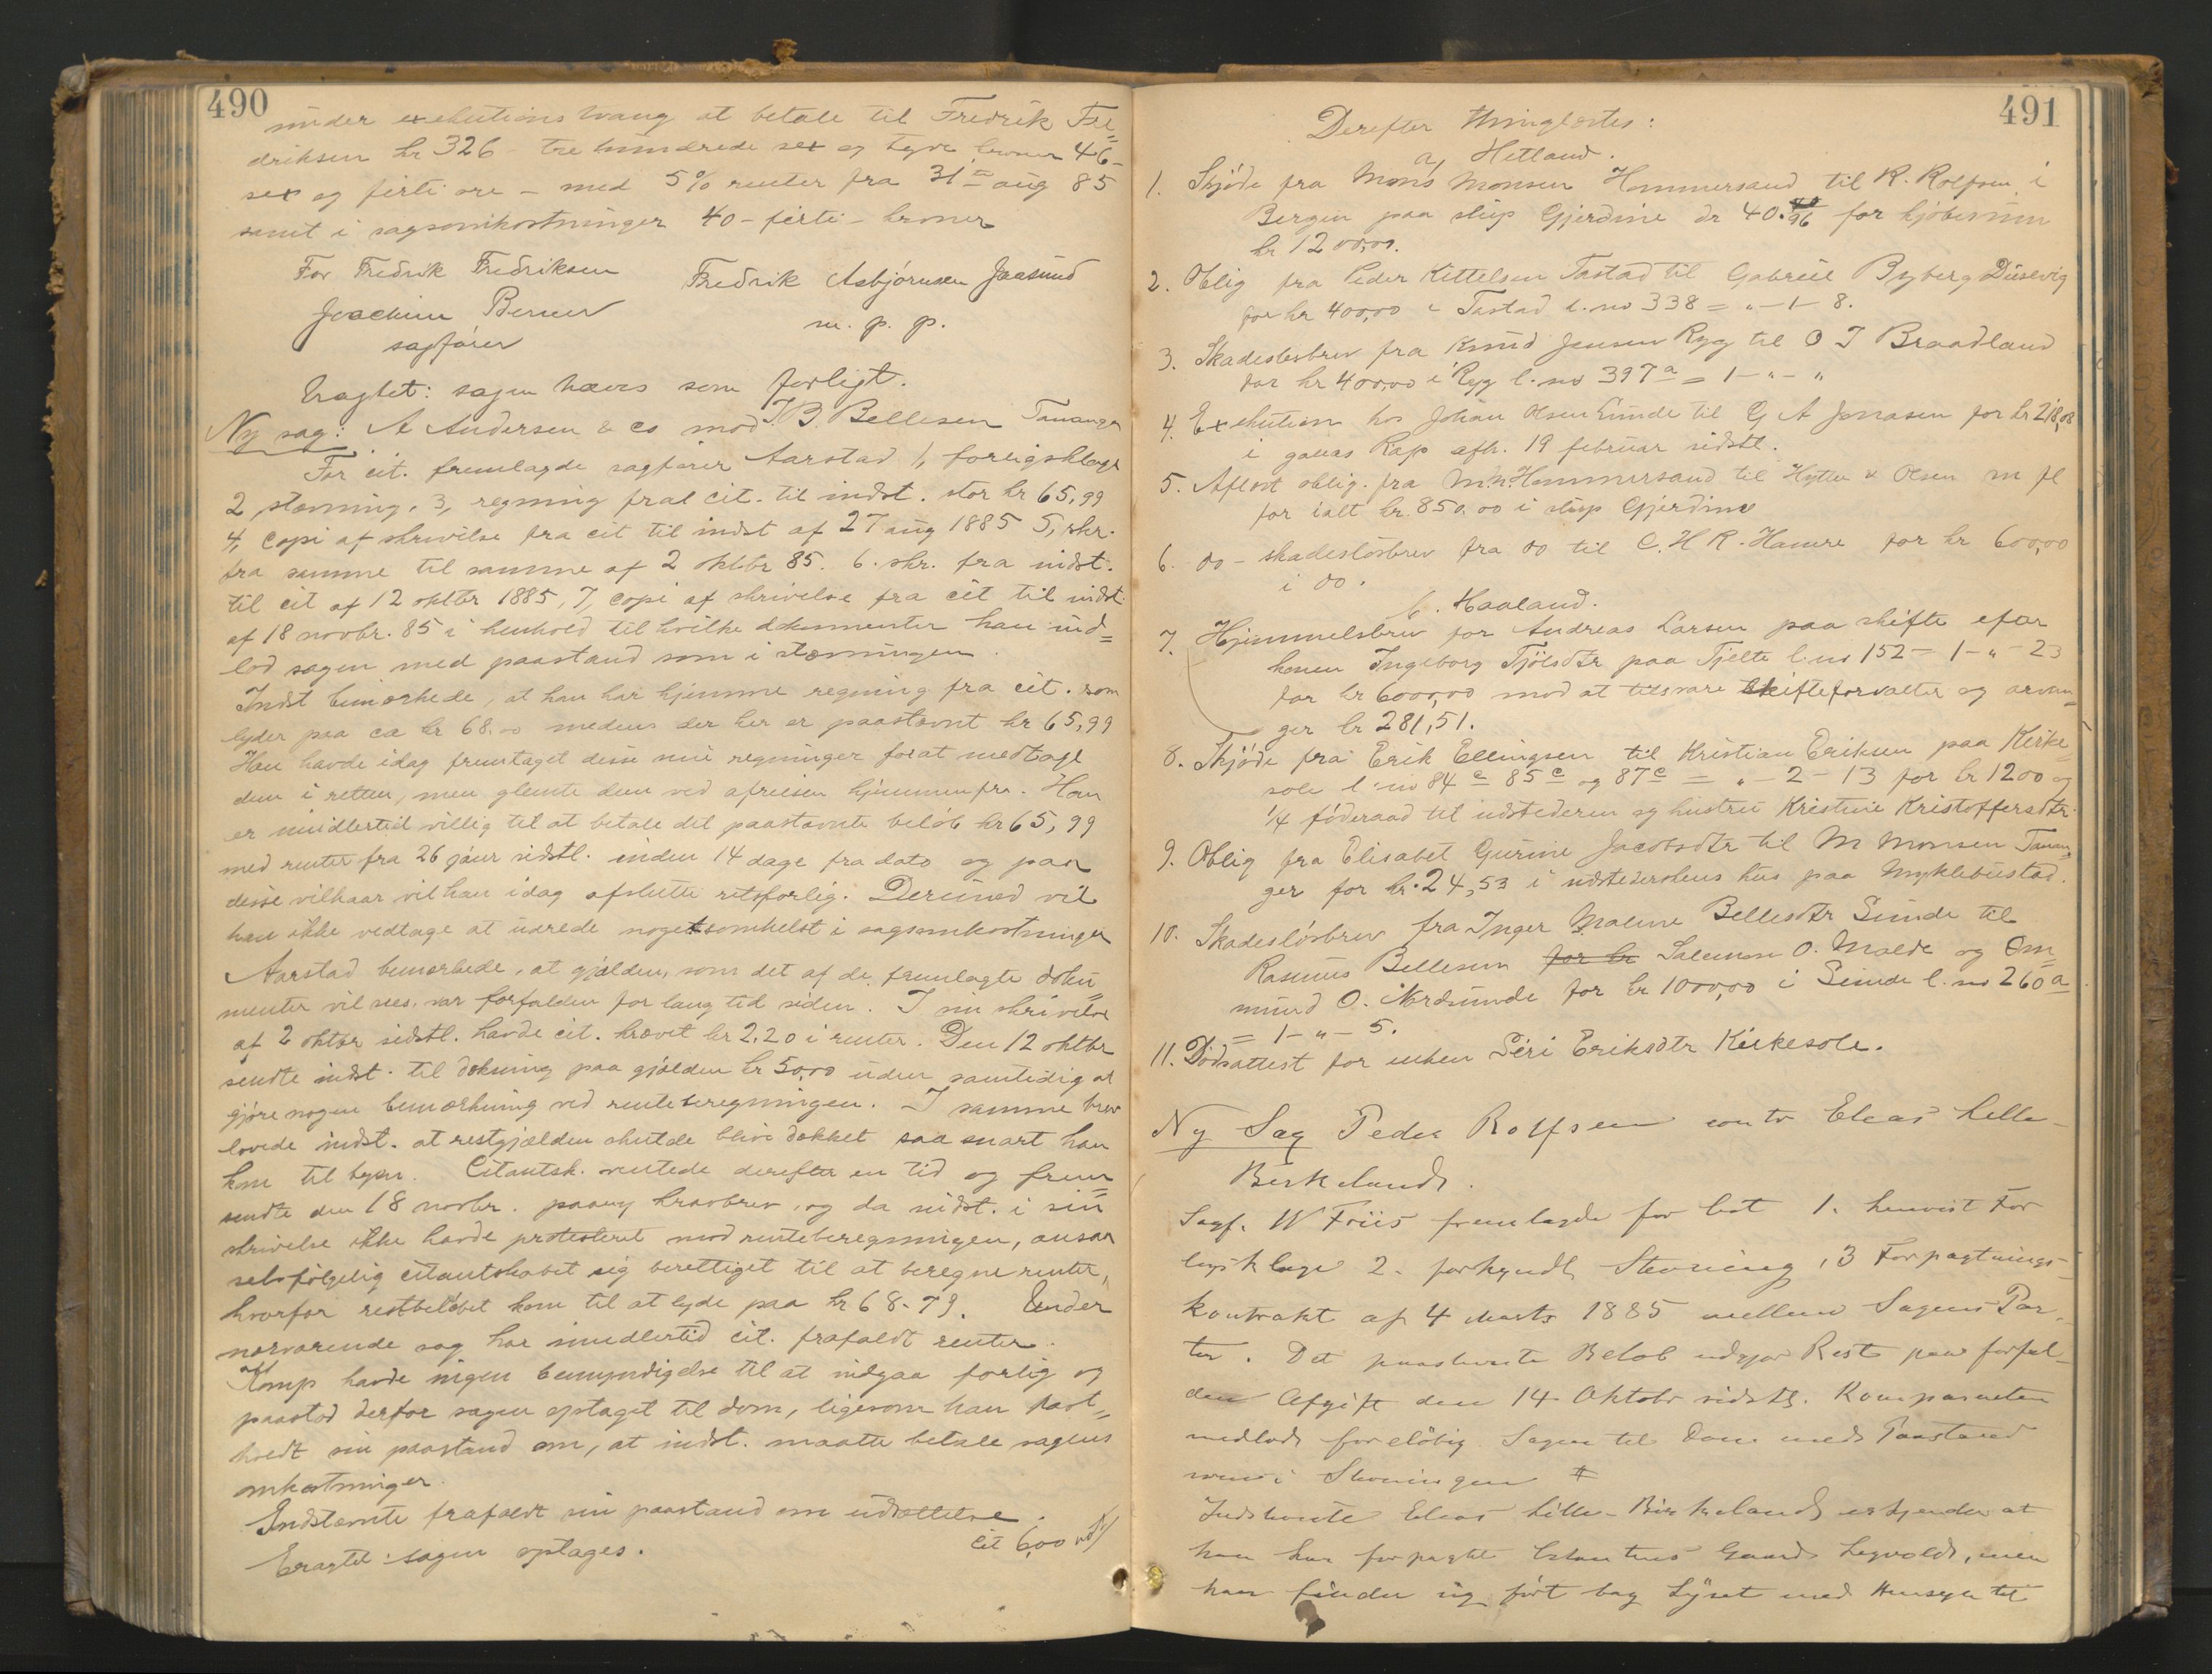 490
under exekutions tvang at betale til Fredrik Fre„
driksen kr 326 - tre hundrede sex og tyve kroner 46 -
sex og firti øre - med 5% renter fra 31te aug 85
samt i sagsomkostninger 40 - firti - kroner
For Fredrik Fredriksen
Fredrik Asbjörnsen Jaasund
Joachim Berner
m. p. p.
sagförer
Eragtet: sagen hæves som forligt.
Ny sag: A Andersen & co mod T. B. Bellesen Tananger
For cit. fremlagde sagfører Aarstad 1, forligsklage
2 stævning, 3, regning fra cit. til indst. stor kr 65,99
4, copi af skrivelse fra cit til indst af 27 aug 1885 5, skr.
fra samme til samme af 2 oktbr 85. 6. skr. fra indst.
til cit af 12 oktbr 1885, 7, copi af skrivelse fra cit til indst.
af 18 novbr. 85 i henhold til hvilke dokumenter han ind=
lod sagen med paastand som i stævningen.
Indst bemærkede, at han har hjemme regning fra cit. som
lyder paa ca kr 68.00 medens der her er paastævnt kr 65,99
Han havde idag fremtaget disse sine regninger forat medtage
dem i retten, men glemte dem ved afreisen hjemmenfra. Han
er imidlertid villig til at betale det paastævnte beløb kr 65,99
med renter fra 26 januar sidstl. inden 14 dage fra dato og paa
disse vilkaar vil han idag afslutte retsforlig. Derimod vil
han ikke vedtage at udrede nogetsomhelst i sagsomkostninger
Aarstad bemærkede, at gjælden, som det af de fremlagte doku„
menter vil sees, var forfalden for lang tid siden. I sin skrivelse
af 2 oktbr sidstl. havde cit. krævet kr 2.20 i renter. Den 12 oktbr
sendte indst. til dækning paa gjælden kr 50,00 uden samtidig at
gjøre nogen bemærkning ved renteberegningen. I samme brev
lovede indst. at restgjælden skulde blive dækket saa snart han
kom til byen. Citantsk. ventede derefter en tid og frem=
sendte den 18 novbr. paany kravbrev, og da indst. i sin
skrivelse ikke havde protesteret mod renteberegningen, ansaa
selvfølgelig citantskabet sig berettiget til at beregne renter,
hvorfor restbeløbet kom til at lyde paa kr 68.79. Under
nærværende sag har imidlertid cit. frafaldt renter.
Komp havde ingen bemyndigelse til at indgaa forlig og
paastod derfor sagen optaget til dom, ligesom han fast„
holdt sin paastand om, at indst. maatte betale sagens
omkostninger.
Indstævnte frafaldt sin paastand om udsættelse.
Eragtet: sagen optages.
cit 6,00
491
Derefter thinglæstes:
a, Hetland.
1. Skjöde fra Mons Monsen Hommersand til R. Rolfsen i
Bergen paa slup Gjerdine dr 40.96 for kjøbesum
kr 1200,00.
2. Oblig fra Peder Kittelsen Tastad til Gabriel Byberg Dusevig
for kr 400,00 i Tastad l. no 338 = „ - 1 - 8.
3. Skadesløsbrev fra Knud Jensen Ryg til O T Braadland
for kr 400,00 i Ryg l. no 397a = 1 - „ - „
4. Exekution hos Johan Olsen Lunde til G A Jonasen for kr 218,08
i galeas Rap afh. 19 februar sidstl.
5. Aflöst oblig. fra M. N. Hommersand til Hytten & Olsen m fl
for ialt kr. 850.00 i slup Gjerdine
6. do - skadeslösbrev fra do til C. H R. Hamre for kr 600,00
i do.
b. Haaland.
7. Hjemmelsbrev for Andreas Larsen paa skifte efter
konen Ingeborg Tjölsdtr paa Tjelte l. no 152 = 1 - „ - 23
for kr 6000,00 mod at tilsvare skifteforvalter og arvin„
ger kr 281,51.
8. Skjöde fra Erik Ellingsen til Kristian Eriksen paa Kirke„
sole l. no 84c 85c og 87c = „ - 2 - 13 for kr 1200 og
1/4 föderaad til udstederen og hustru Kristine Kristoffersdtr.
9. Oblig fra Elisabet Gurine Jacobsdtr til M Monsen Tanan„
ger for kr. 24,53 i udstederskens hus paa Myklebustad.
10. Skadeslösbrev fra Inger Malene Bellesdtr Sunde til
Rasmus Bellesen for kr Salemon O. Malde og Om=
mund O. Nordsunde for kr 1000,00 i Sunde l. no 260a
= 1 - „ - 5.
11. Dödsattest for enken Siri Eriksdtr Kirkesole.
Ny Sag Peder Rolfsen contr Elias Lille-
Birkelands.
Sagf. W Friis fremlagde for Cit 1. henvist For
ligsklage 2. forkyndt Stævning, 3 Forpagtnings-
kontrakt af 4 Marts 1885 mellem Sagens Par-
ter. Det paastævnte Beløb udgjør Rest paa forfal-
den Afgift den 14 Oktobr sidstl. Komparenten
indlod foreløbig Sagen til Dom med Paastand
som i Stævningen #
Indstævnte Elias Lille-Birkeland erkjender at
han har forpagtet Citantens Gaard Legvold, men
han finder sig ført bag Lyset med Hensyn til